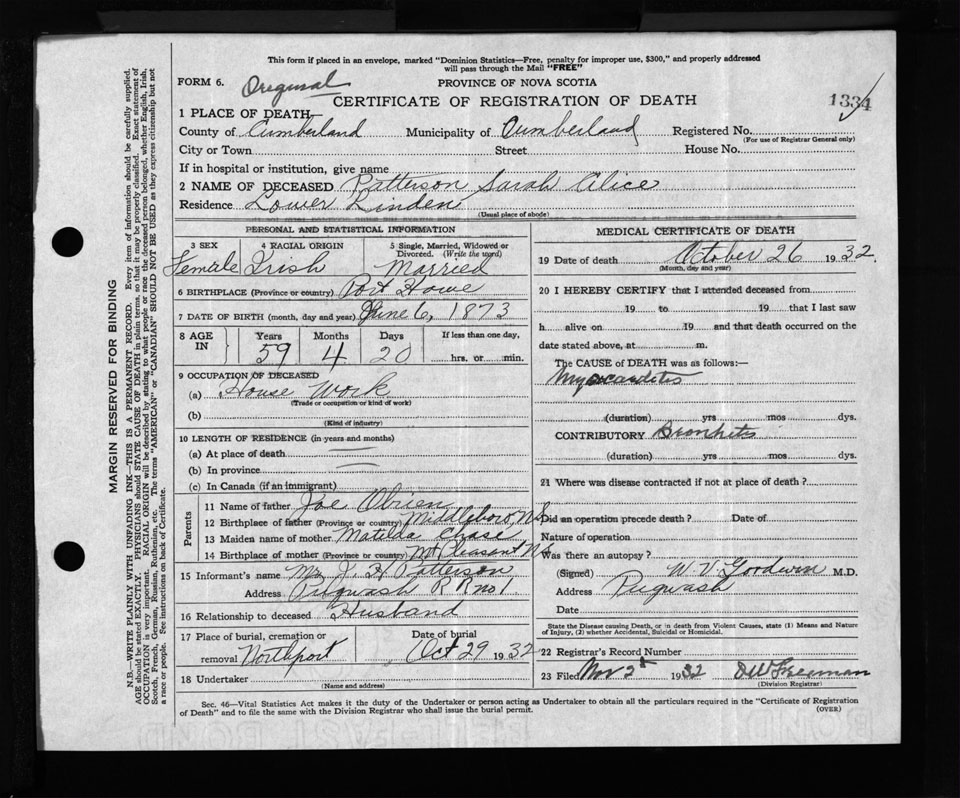 This form if placed in an envelope, marked "Dominion Statistics—Free, penalty for improper use, $300," and properly addressed
will pass through the Mail "FREE"
FORM 6. Original PROVINCE OF NOVA SCOTIA
CERTIFICATE OF REGISTRATION OF DEATH 1334
1 PLACE OF DEATH
County of Cumberland Municipality of Cumberland Registered No.
(For use of Registrar General only)
City or Town Street House No.
If in hospital or institution, give name
2 NAME OF DECEASED Patterson Sarah Alice
Residence Lower Linden
(Usual place of abode)
PERSONAL AND STATISTICAL INFORMATION
3 SEX 4 RACIAL ORIGIN 5 Single, Married, Widowed or
Divorced. (Write the word)
Female Irish Married
6 BIRTHPLACE (Province or country) Port Howe
7 DATE OF BIRTH (month, day and year) June 6, 1873
8 AGE IN Years Months Days If less than one day,
59 4 20 hrs. or min.
9 OCCUPATION OF DECEASED
(a) House Work
(Trade or occupation or kind of work)
(b)
(Kind of industry)
10 LENGTH OF RESIDENCE (in years and months)
(a) At place of death
(b) In province
(c) In Canada (if an immigrant)
Parents
11 Name of father Joe Obrien
12 Birthplace of father (Province or country) Middleboro, NS
13 Maiden name of mother Matilda Chase
14 Birthplace of mother (Province or country) Mt Pleasant NS
15 Informant's name Mr J. H Patterson
Address Pugwash R R no 1
16 Relationship to deceased Husband
17 Place of burial, cremation or Date of burial
removal Northport Oct 29 1932
18 Undertaker
(Name and address)
MEDICAL CERTIFICATE OF DEATH
19 Date of death October 26 1932.
(Month, day and year)
20 I HEREBY CERTIFY that I attended deceased from
19 to 19 that I last saw
h alive on 19 and that death occurred on the
date stated above, at m.
The CAUSE OF DEATH was as follows:—
Myocarditis
(duration) yrs mos dys.
CONTRIBUTORY Bronhitis
(duration) yrs mos dys.
21 Where was disease contracted if not at place of death?
Did an operation precede death? Date of
Nature of operation
Was there an autopsy?
(Signed) W. V. Goodwin M.D.
Address Pugwash
Date
State the Disease causing Death, or in death from Violent Causes, state (1) Means and Nature
of Injury, (2) whether Accidental, Suicidal or Homicidal.
22 Registrar's Record Number
23 Filed Nov 2d 1932 D W Freeman
(Division Registrar)
Sec. 46—Vital Statistics Act makes it the duty of the Undertaker or person acting as Undertaker to obtain all the particulars required in the "Certificate of Registration
of Death" and to file the same with the Division Registrar who shall issue the burial permit. (OVER)
MARGIN RESERVED FOR BINDING
N.B.—WRITE PLAINLY WITH UNFADING INK—THIS IS A PERMANENT RECORD. Every item of information should be carefully supplied.
AGE should be stated EXACTLY. PHYSICIANS should STATE CAUSE OF DEATH in plain terms, so that it may be properly classified. Exact statement of
OCCUPATION is very important. RACIAL ORIGIN will be described by stating to what people or race the deceased person belonged, whether English, Irish,
Scotch, French, German, Russian, Ruthenian, etc. The terms "AMERICAN" or "CANADIAN" SHOULD NOT BE USED as they express citizenship but not
a race or people. See instructions on back of Certificate.